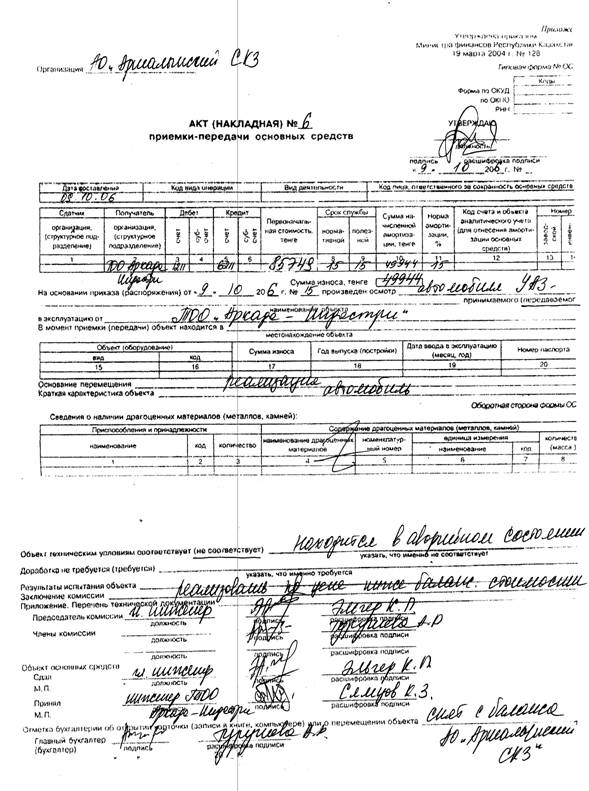 Приложе
Утверждена приказом
Министра финансов Республики Казахстан
19 марта 2004 г. № 128
Организация АО „Армалынский СКЗ
Типовая форма № ОС
Коды
Форма по ОКУД
по ОКПО
РНН
АКТ (НАКЛАДНАЯ) № 6
приемки-передачи основных средств
УТВЕРЖДАЮ
должность
подпись расшифровка подписи
« 9 » 10 2006 г. №
Дата составления Код вида операции Вид деятельности Код лица, ответственного за сохранность основных средств
09.10.06
Сдатчик Получатель Дебет Кредит Первоначальная стоимость, тенге Срок службы Сумма начисленной амортизации, тенге Норма амортизации, % Код счета и объекта аналитического учета (для отнесения амортизации основных средств) Номер
организация, (структурное подразделение) организация, (структурное подразделение) счет субсчет счет субсчет нормативной полезной
1 3 4 6 11 12 13
ТОО „Аркада Индастри 85749 15 15 49944 15
Сумма износа, тенге 49944
На основании приказа (распоряжения) от « 9 » 10 2006 г. № 15 произведен осмотр автомобиль УАЗ-
наименование объекта
принимаемого (передаваемого
в эксплуатацию от ТОО „Аркада - Индастри"
В момент приемки (передачи) объект находится в
местонахождение объекта
Объект (оборудование) Сумма износа Год выпуска (постройки) Дата ввода в эксплуатацию (месяц, год) Номер паспорта
вид код
15 16 17 18 19 20
Основание перемещения реализация
Краткая характеристика объекта автомобиль
Оборотная сторона формы ОС
Сведения о наличии драгоценных материалов (металлов, камней):
Приспособления и принадлежности Содержание драгоценных материалов (металлов, камней)
наименование код количество наименование драгоценных материалов номенклатурный номер единица измерения количество (масса)
наименование код
1 2 3 4 5 6 7 8
Объект техническим условиям соответствует (не соответствует) находится в аварийном состоянии
указать, что именно не соответствует
Доработка не требуется (требуется)
указать, что именно требуется
Результаты испытания объекта реализовать по цене ниже баланс. стоимости
Заключение комиссии
Приложение. Перечень технической документации
Председатель комиссии гл. инженер Эльгер К.П.
должность подпись расшифровка подписи
Члены комиссии
должность подпись расшифровка подписи
должность подпись расшифровка подписи
Объект основных средств
Сдал гл инженер Эльгер К.П.
М.П. должность подпись расшифровка подписи
Принял инженер ТОО Семцов К.З.
М.П. Аркада-Индастри расшифровка подписи
Отметка бухгалтерии об открытии карточки (записи в книге, компьютере) или о перемещении объекта снят с баланса
Главный бухгалтер
(бухгалтер) подпись расшифровка подписи
АО „Армалынский
СКЗ"